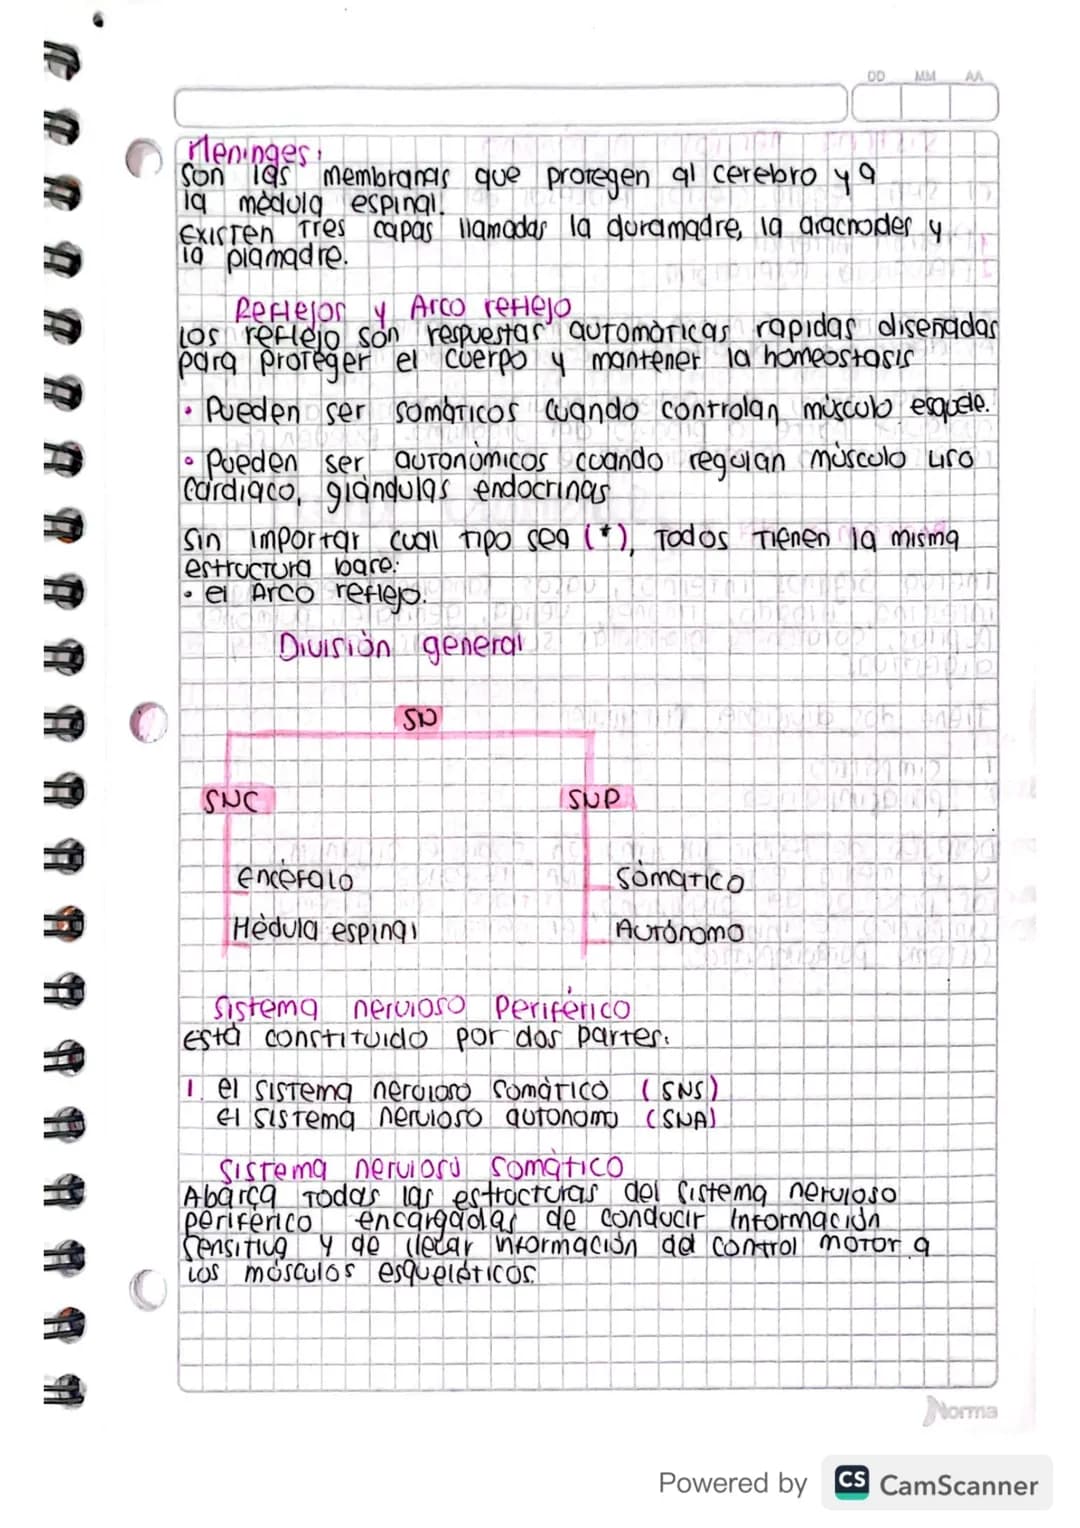 DD MM AA
Meninges:
Son las membranas que protegen al cerebro y a
la mèdula espinal.
Existen tres capas llamadas la duramadre, la aracnodes y
la piamadre.
Reflejos y Arco reflejo
Los reflejo son respuestas automàticas rapidas diseñadas
para proteger el cuerpo y mantener la homeostasis
• Pueden ser somàticos cuando controlan mùsculo esquele.
• Pueden ser autonòmicos cuando regulan mùsculo liso
Cardiaco, glàndulas endocrinas
Sin importar cual tipo sea (*), todos tienen la misma
estructura base:
• el Arco reflejo.
Divisiòn general
SN
SNC SNP
encèfalo sòmatico
Mèdula espinal Autónomo
Sistema nervioso Periférico
està constituido por dos partes:
1. el sistema nervioso Somàtico (SNS)
el sistema nervioso autonomo (SNA)
Sistema nervioso Somàtico
Abarca todas las estructuras del sistema nervioso
periférico encargadas de conducir informaciòn
Sensitiva y de llevar informaciòn del control motor a
los mùsculos esquelèticos.
Norma
Powered by CS CamScanner